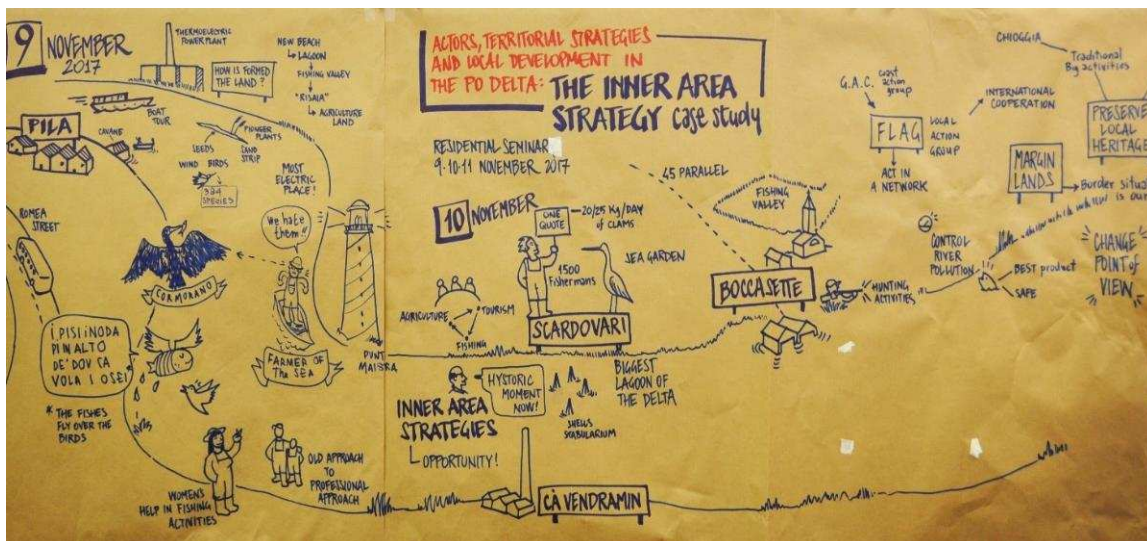 9 NOVEMBER
2017
THERMOELECTRIC
POWER PLANT
HOW IS FORMED
THE LAND?
NEW BEACH
LAGOON
FISHING VALLEY
"RISAIA"
AGRICULTURE
LAND
BOAT
TOUR
PILA
CAVANE
PIONEER
PLANTS
SAND
STRIP
SEEDS
WIND BIRDS
SPECIES
MOST
ELECTRIC
PLACE!
ROMEA
STREET
We hate
them!!
CORMORANO
I PISI INODA
PI IN ALTO
DE' DOV CA
VOLA I OSEI*
* THE FISHES
FLY OVER THE
BIRDS
FARMER OF
the SEA
PUNTA
MAISTRA
WOMENS
HELP IN FISHING
ACTIVITIES
OLD APPROACH
TO
PROFESSIONAL
APPROACH
ACTORS, TERRITORIAL STRATEGIES
AND LOCAL DEVELOPMENT IN
THE PO DELTA: THE INNER AREA
STRATEGY case study
RESIDENTIAL SEMINAR
9-10-11 NOVEMBER 2017
10 NOVEMBER
ONE
QUOTE
20/25 Kg/DAY
of CLAMS
1500
Fishermans
SEA GARDEN
AGRICULTURE
TOURISM
FISHING
SCARDOVARI
BIGGEST
LAGOON OF
THE DELTA
HYSTORIC
MOMENT
NOW!
SHELLS
SCABULARIUM
INNER AREA
STRATEGIES
OPPORTUNITY!
CÀ VENDRAMIN
45 PARALLEL
FISHING
VALLEY
BOCCASETTE
HUNTING
ACTIVITIES
G.A.C. coast
action
group
FLAG
LOCAL
ACTION
GROUP
INTERNATIONAL
COOPERATION
ACT IN
A NETWORK
CHIOGGIA
Traditional
Big activities
PRESERVE
LOCAL
HERITAGE
MARGIN
LANDS
Border situa
CONTROL
RIVER
POLLUTION
BEST product
SAFE
CHANGE
POINT of
VIEW